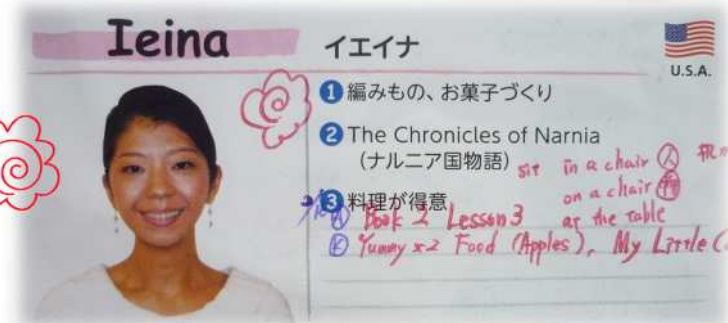 Ieina
イエイナ
U.S.A.
1 編みもの、お菓子づくり
2 The Chronicles of Narnia
(ナルニア国物語)
sit in a chair 人
on a chair
3 料理が得意
at the table
A Book 2 Lesson 3
K Yummy x2 Food (Apples), My Little